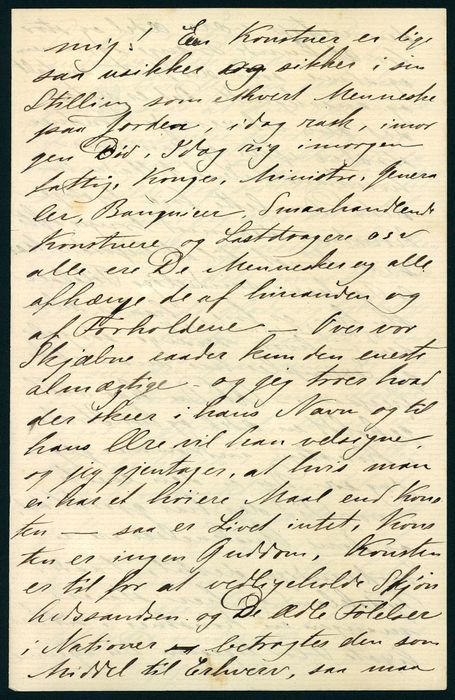 mig! En Konstner er lige
saa usikker og sikker i sin
Stilling som ethvert Menneske
paa Jorden, idag rask, imor
gen Død, Idag rig imorgen
fattig, Konger, Ministre, Genera
ler, Banquier, Smaahandlende
Konstnere og Lastdragere osv
alle ere De Mennesker og alle
afhænge de af hinanden og
af Forholdene — Over vor
Skjæbne raader kun den eneste
almægtige - og jeg troer hvad
der skeer i hans Navn og til
hans Ære vil han velsigne,
og jeg gjentager, at hvis man
ei har et høiere Maal end Kons
ten — saa er Livet intet, Kons
ten er ingen Guddom, Konsten
er til for at vedligeholde Skjøn
hedssandsen og De ædle Følelser
i Nationer betragtes den som
Middel til Erhverv, saa maa